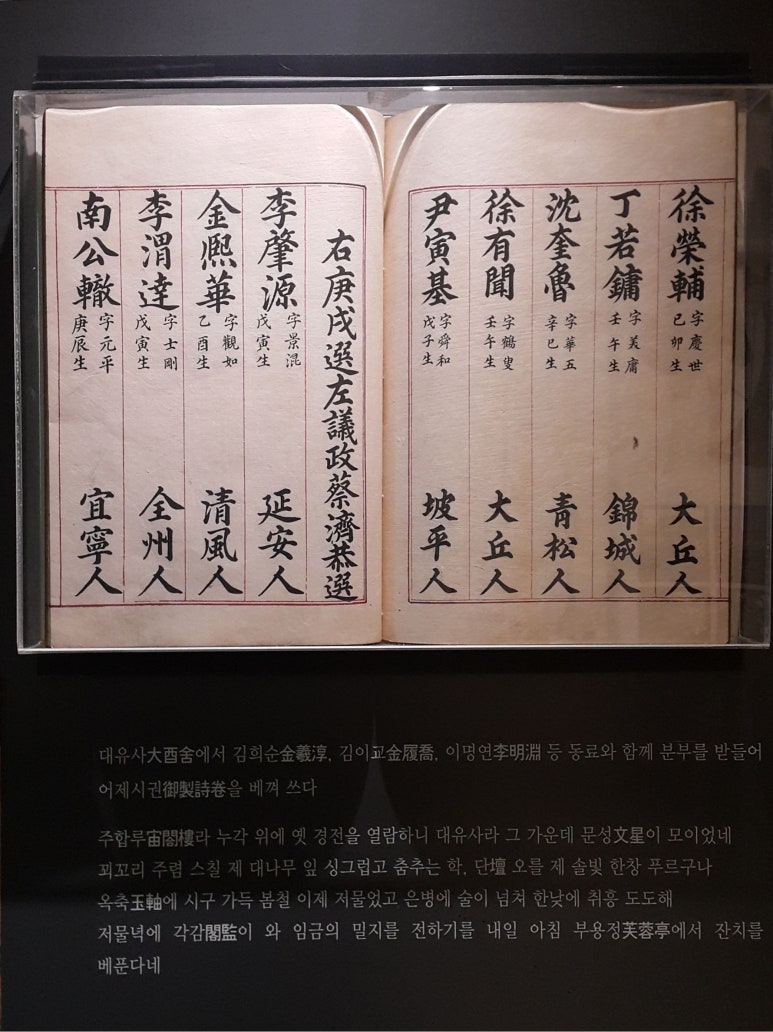 徐榮輔 字慶世 己卯生 大丘人
丁若鏞 字美庸 壬午生 錦城人
沈奎魯 字華五 辛巳生 靑松人
徐有聞 字鶴叟 壬午生 大丘人
尹寅基 字舜和 戊子生 坡平人
右庚戌選左議政蔡濟恭選
李肇源 字景混 戊寅生 延安人
金熈華 字觀如 乙酉生 清風人
李渭達 字士剛 戊寅生 全州人
南公轍 字元平 庚辰生 宜寧人
대유사大酉舍에서 김희순金羲淳, 김이교金履喬, 이명연李明淵 등 동료와 함께 분부를 받들어
어제시권御製詩卷을 베껴 쓰다
주합루宙閤樓라 누각 위에 옛 경전을 열람하니 대유사라 그 가운데 문성文星이 모이었네
꾀꼬리 주렴 스칠 제 대나무 잎 싱그럽고 춤추는 학, 단壇 오를 제 솔빛 한창 푸르구나
옥축玉軸에 시구 가득 봄철 이제 저물었고 은병에 술이 넘쳐 한낮에 취흥 도도해
저물녘에 각감閣監이 와 임금의 밀지를 전하기를 내일 아침 부용정芙蓉亭에서 잔치를
베푼다네